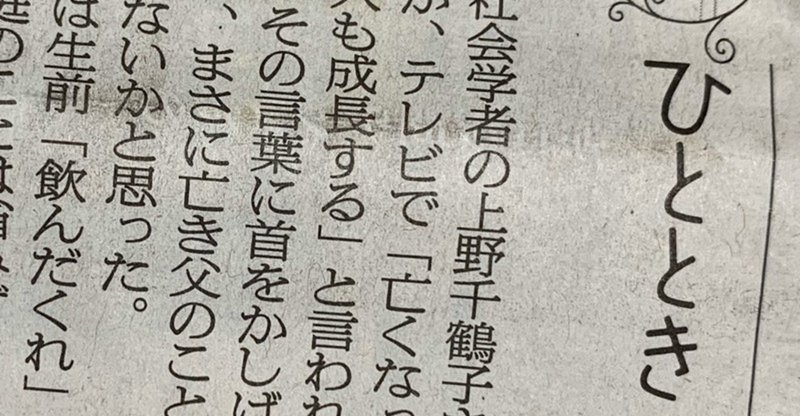 ひととき
社会学者の上野千鶴子さ
が、テレビで「亡くなっ
人も成長する」と言われ
その言葉に首をかしげ
、まさに亡き父のこと
ないかと思った。
は生前「飲んだくれ」
庭のことは